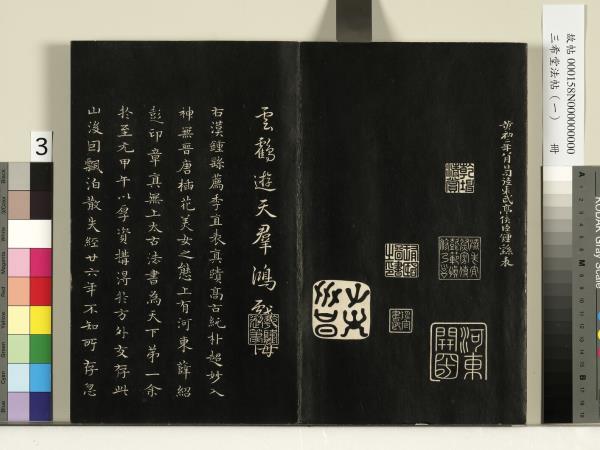 故帖 000158N000000000
三希堂法帖（一） 冊
黃初二年八月日司徒東武亭侯臣鍾繇表
河東
開國
雲鶴遊天羣鴻戲海
右漢鍾繇薦季直表真蹟高古純朴超妙入
神無晉唐插花美女之態上有河東薛紹
彭印章真無上太古法書為天下第一余
於至元甲午以厚資購得於方外友存此
山後因飄泊散失經廿六年不知所存忽
3
KODAK Gray Scale
A
M
B
Black
White
Magenta
Red
Yellow
Green
Cyan
Blue